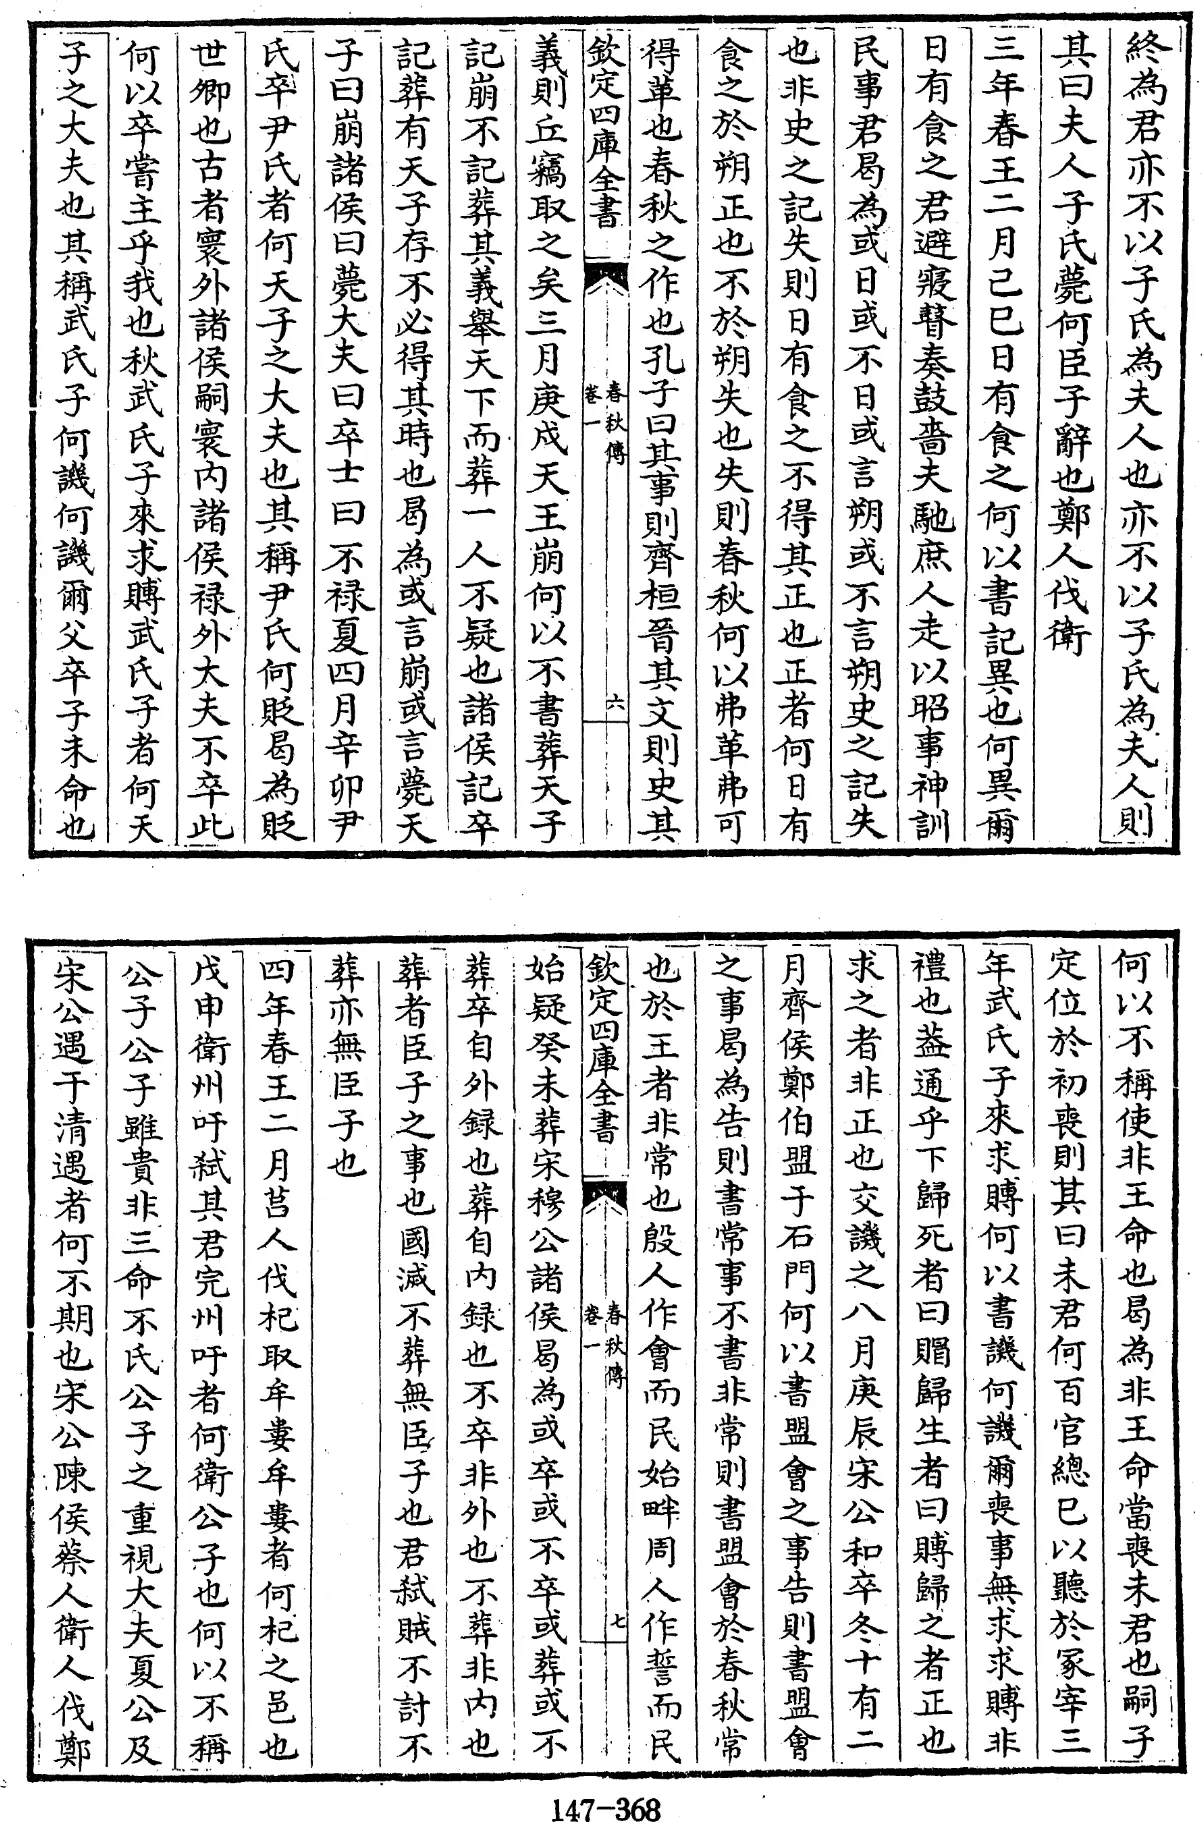 終為君亦不以子氏為夫人也亦不以子氏為夫人則
其曰夫人子氏薨何臣子辭也鄭人伐衛
三年春王二月己巳日有食之何以書記異也何異爾
日有食之君避寢瞽奏鼓嗇夫馳庶人走以昭事神訓
民事君曷為或日或不日或言朔或不言朔史之記失
也非史之記失則日有食之不得其正也正者何日有
食之於朔正也不於朔失也失則春秋何以弗革弗可
得革也春秋之作也孔子曰其事則齊桓晉其文則史其
欽定四庫全書
春秋傳
卷一
六
義則丘竊取之矣三月庚戌天王崩何以不書葬天子
記崩不記葬其義舉天下而葬一人不疑也諸侯記卒
記葬有天子存不必得其時也曷為或言崩或言薨天
子曰崩諸侯曰薨大夫曰卒士曰不禄夏四月辛卯尹
氏卒尹氏者何天子之大夫也其稱尹氏何貶曷為貶
世卿也古者寰外諸侯嗣寰内諸侯禄外大夫不卒此
何以卒嘗主乎我也秋武氏子來求賻武氏子者何天
子之大夫也其稱武氏子何譏何譏爾父卒子未命也
何以不稱使非王命也曷為非王命當喪未君也嗣子
定位於初喪則其曰未君何百官總已以聽於冢宰三
年武氏子來求賻何以書譏何譏爾喪事無求求賻非
禮也葢通乎下歸死者曰賵歸生者曰賻歸之者正也
求之者非正也交譏之八月庚辰宋公和卒冬十有二
月齊侯鄭伯盟于石門何以書盟會之事告則書盟會
之事曷為告則書常事不書非常則書盟會於春秋常
也於王者非常也殷人作會而民始畔周人作誓而民
欽定四庫全書
春秋傳
卷一
七
始疑癸未葬宋穆公諸侯曷為或卒或不卒或葬或不
葬卒自外録也葬自内録也不卒非外也不葬非内也
葬者臣子之事也國滅不葬無臣子也君弑賊不討不
葬亦無臣子也
四年春王二月莒人伐杞取牟婁牟婁者何杞之邑也
戊申衛州吁弑其君完州吁者何衛公子也何以不稱
公子公子雖貴非三命不氏公子之重視大夫夏公及
宋公遇于清遇者何不期也宋公陳侯蔡人衛人伐鄭
147-368